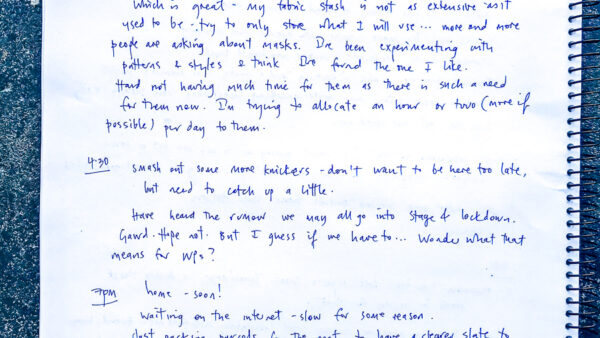 which is great - my fabric stash is not as extensive as it
used to be - try to only store what I will use... more and more
people are asking about masks. I've been experimenting with
patterns & styles & think I've found the one I like.
Hard not having much time for them as there is such a need
for them now. I'm trying to allocate an hour or two (more if
possible) per day to them.
4.30 smash out some more knickers - don't want to be here too late,
but need to catch up a little.
Have heard the rumour we may all go into stage 4 lockdown.
Gawd. Hope not. But I guess if we have to... Wonder what that
means for WPs?
7pm home - soon!
waiting on the internet - slow for some reason.
Just packing parcels to have a clearer slate to